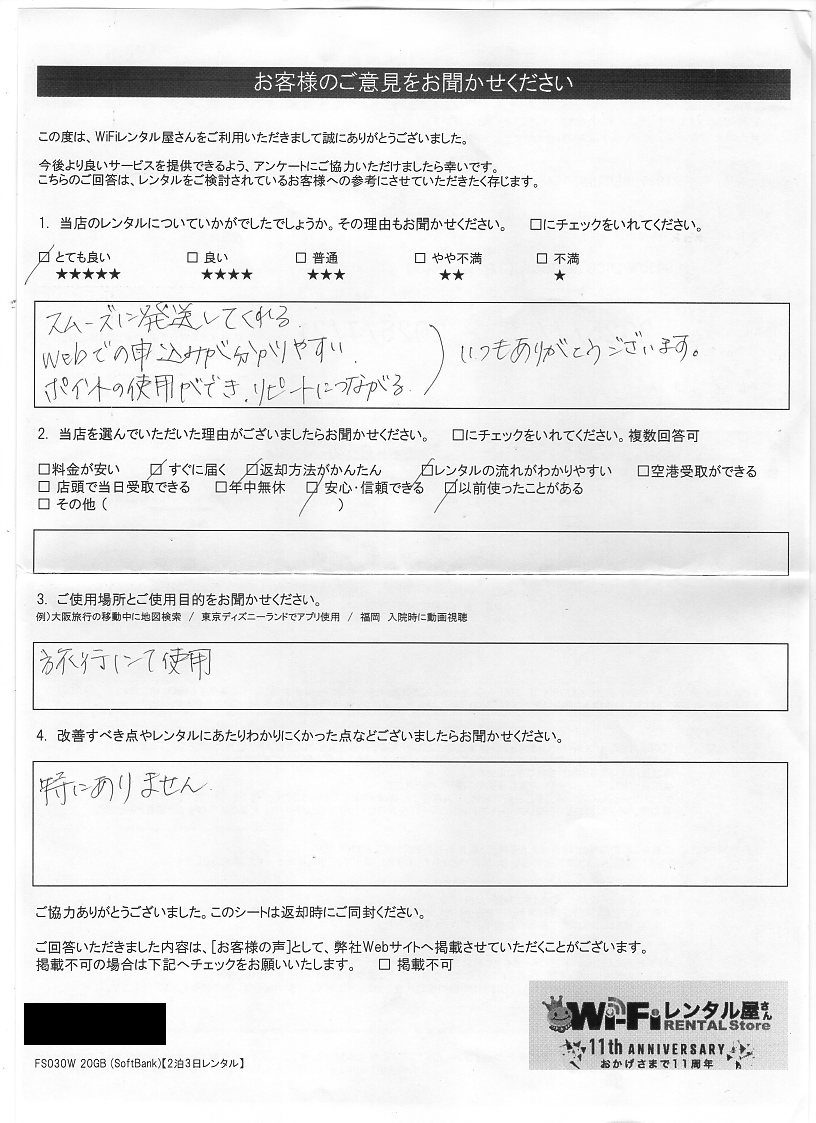 お客様のご意見をお聞かせください
この度は、WiFiレンタル屋さんをご利用いただきまして誠にありがとうございました。
今後より良いサービスを提供できるよう、アンケートにご協力いただけましたら幸いです。
こちらのご回答は、レンタルをご検討されているお客様への参考にさせていただきたく存じます。
1. 当店のレンタルについていかがでしたでしょうか。その理由もお聞かせください。 □にチェックをいれてください。
□ とても良い □ 良い □ 普通 □ やや不満 □ 不満
★★★★★ ★★★★ ★★★ ★★ ★
スムーズに発送してくれる.
Webでの申込みが分かりやすい.
ポイントの使用ができ、リピートにつながる.
) いつもありがとうございます。
2. 当店を選んでいただいた理由がございましたらお聞かせください。 □にチェックをいれてください。複数回答可
□料金が安い □ すぐに届く □返却方法がかんたん □レンタルの流れがわかりやすい □空港受取ができる
□ 店頭で当日受取できる □年中無休 □ 安心・信頼できる □以前使ったことがある
□ その他 ( )
3. ご使用場所とご使用目的をお聞かせください。
例)大阪旅行の移動中に地図検索 / 東京ディズニーランドでアプリ使用 / 福岡 入院時に動画視聴
旅行にて使用
4. 改善すべき点やレンタルにあたりわかりにくかった点などございましたらお聞かせください。
特にありません.
ご協力ありがとうございました。このシートは返却時にご同封ください。
ご回答いただきました内容は、[お客様の声]として、弊社Webサイトへ掲載させていただくことがございます。
掲載不可の場合は下記へチェックをお願いいたします。 □ 掲載不可
Wi-Fiレンタル屋さん
RENTAL Store
11th ANNIVERSARY
おかげさまで11周年
FS030W 20GB (SoftBank)【2泊3日レンタル】